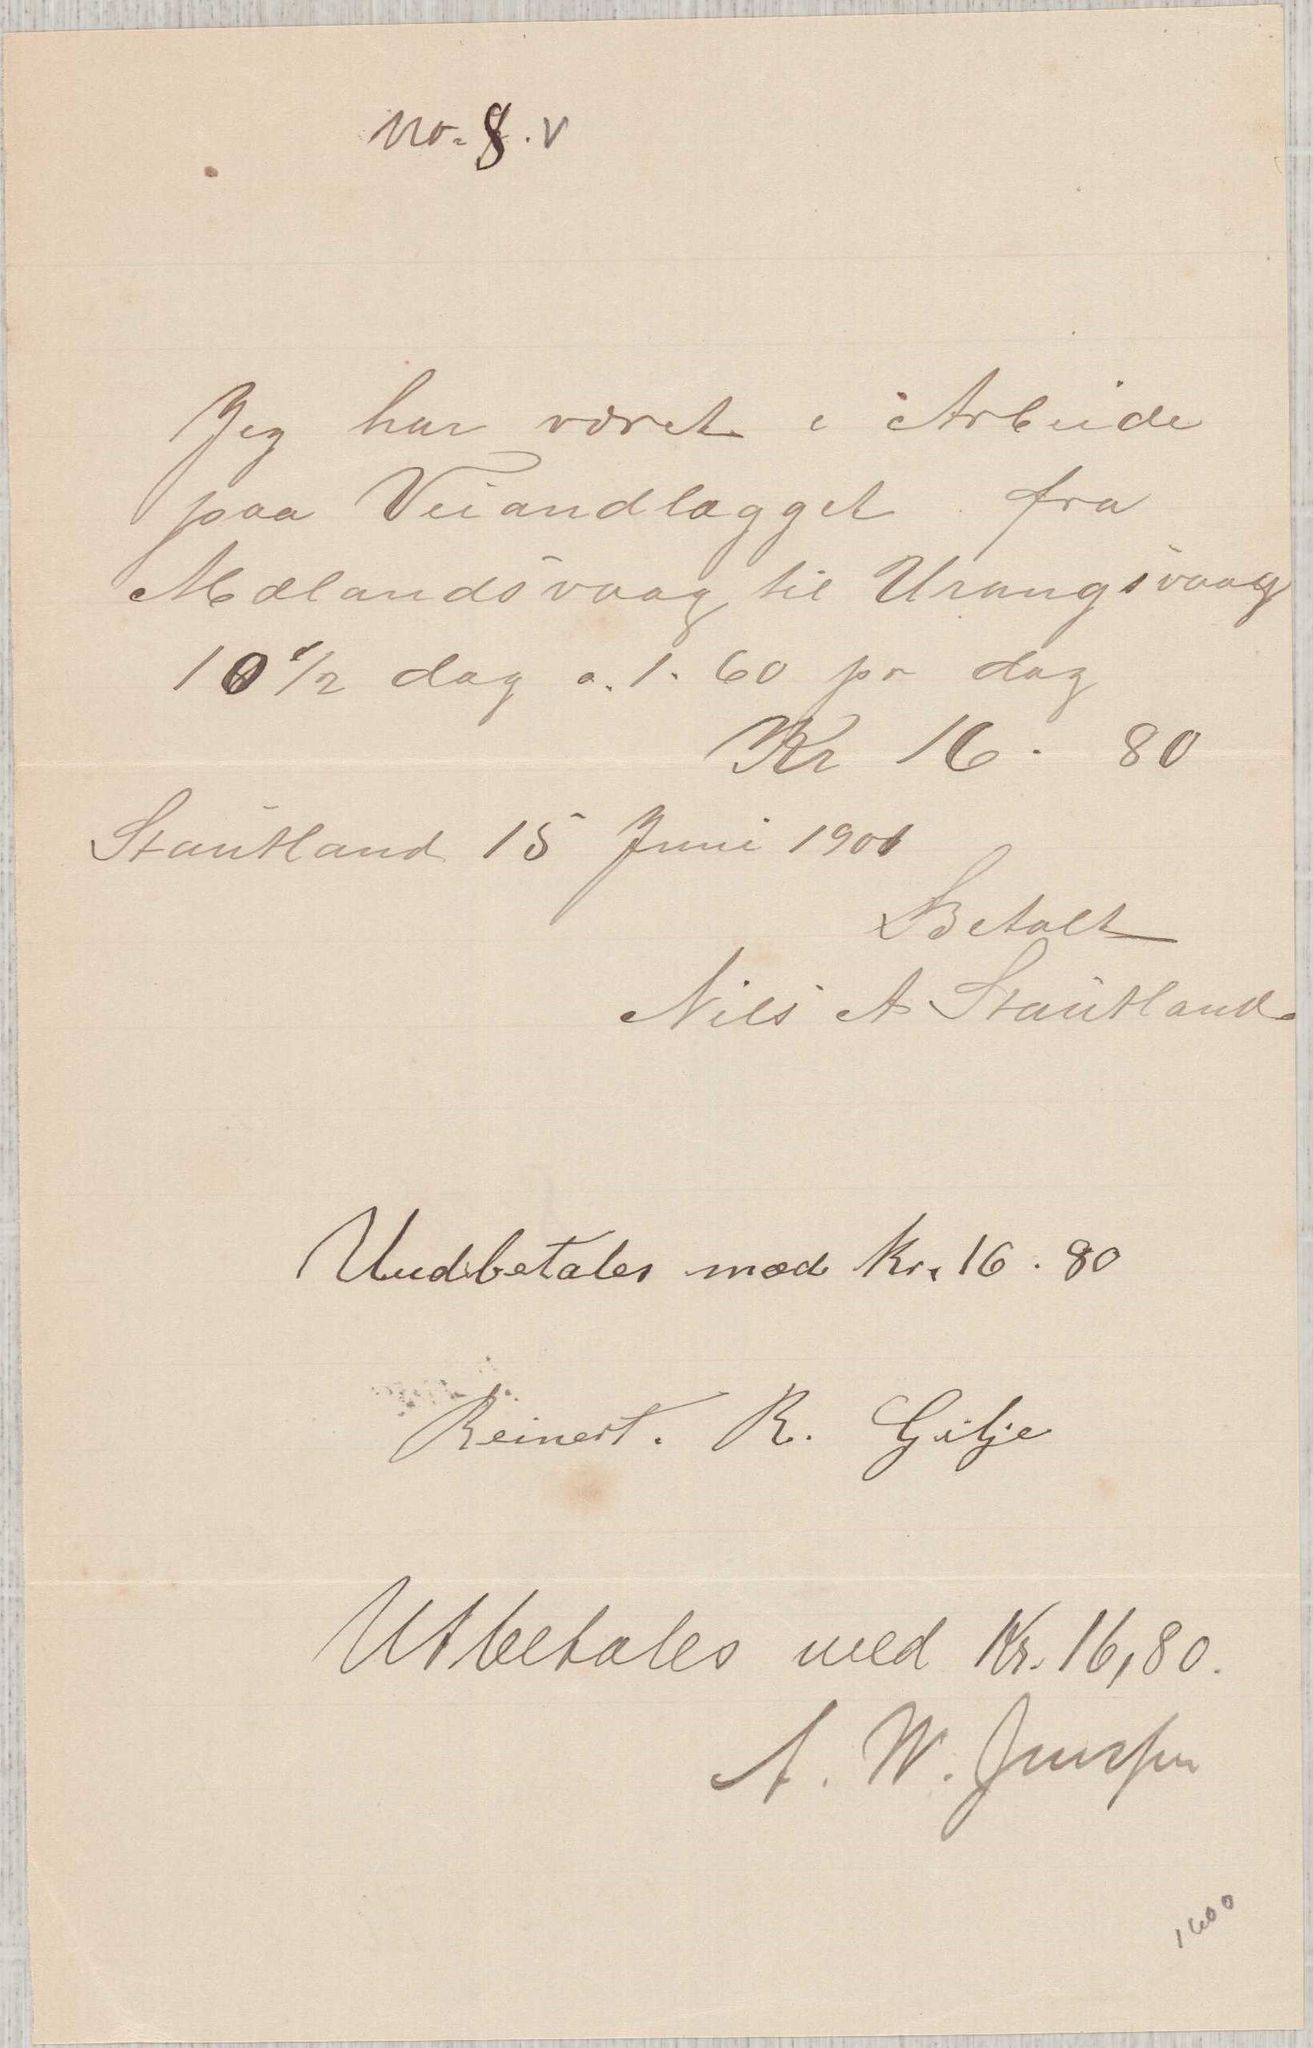 No. 8. v
Jeg har været i Arbeide
paa Veiandlægget fra
Mælandsvaag til Urangsvaag
10 1/2 dag a. 1. 60 pr dag
Kr 16. 80
Stautland 15 Juni 1901
Betalt
Nils A Stautland
Uudbetales mæd Kr. 16. 80
Reinert. R. Gilje
Utbetales med Kr. 16,80.
A. W.
1600